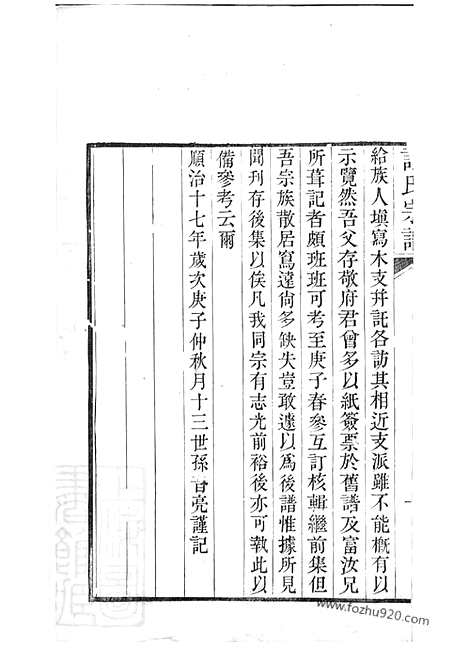 氏宗譜
給族人塡寫本支幷託各訪其相近支派雖不能槪有以
示覽然吾父存敬府君曾多以紙簽票於舊譜及富汝兄
所葺記者頗班班可考至庚子春參互訂核輯繼前集但
吾宗族散居寫遠尙多缺失豈敢遽以爲後譜惟據所見
聞刊存後集以俟凡我同宗有志光前裕後亦可執此以
備參考云爾
順治十七年歲次庚子仲秋月十三世孫晉亮謹記
www.fozhu920.com